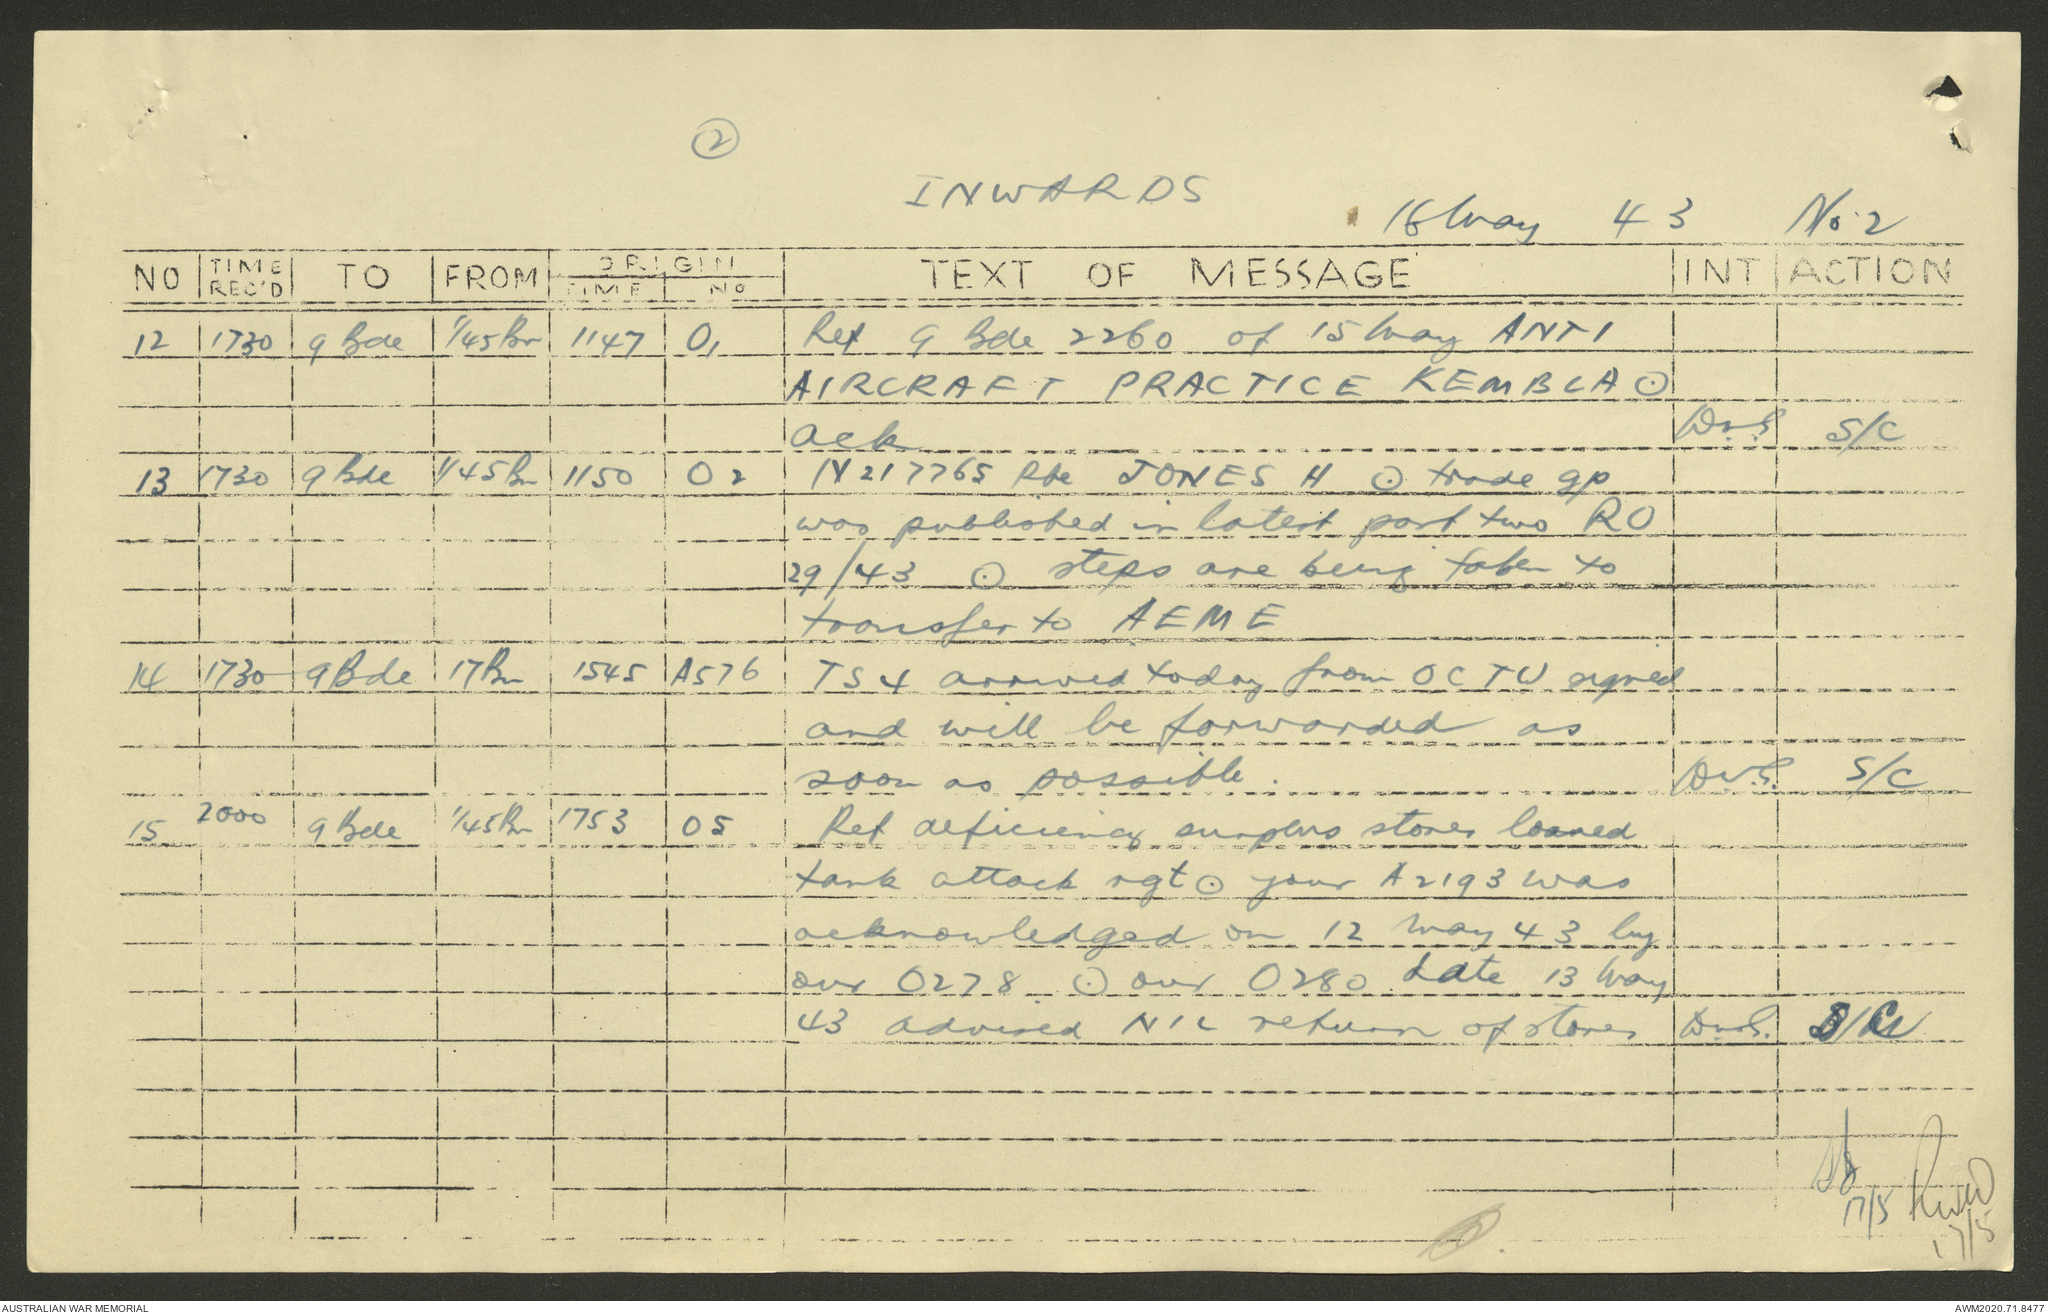 ②
INWARDS
16 May 43 No. 2
NO TIME REC'D TO FROM ORIGIN TIME No TEXT OF MESSAGE INT ACTION
12 1730 9 Bde 1/45 Bn 1147 O1 Ref 9 Bde 2260 of 15 May ANTI
AIRCRAFT PRACTICE KEMBLA ⊙
ack S/C
13 1730 9 Bde 1/45 Bn 1150 O2 N217765 Pte JONES H ⊙ trade gp
was published in latest part two RO
29/43 ⊙ steps are being taken to
transfer to AEME
14 1730 9 Bde 17 Bn 1545 A576 TS4 arrived today from OCTU signed
and will be forwarded as
soon as possible. S/C
15 2000 9 Bde 1/45 Bn 1753 O5 Ref deficiency surplus stores loaned
tank attack rgt ⊙ your A2193 was
acknowledged on 12 May 43 by
our O278 ⊙ our O280 date 13 May
43 advised NIL return of stores
17/5
17/5
AUSTRALIAN WAR MEMORIAL AWM2020.71.8477